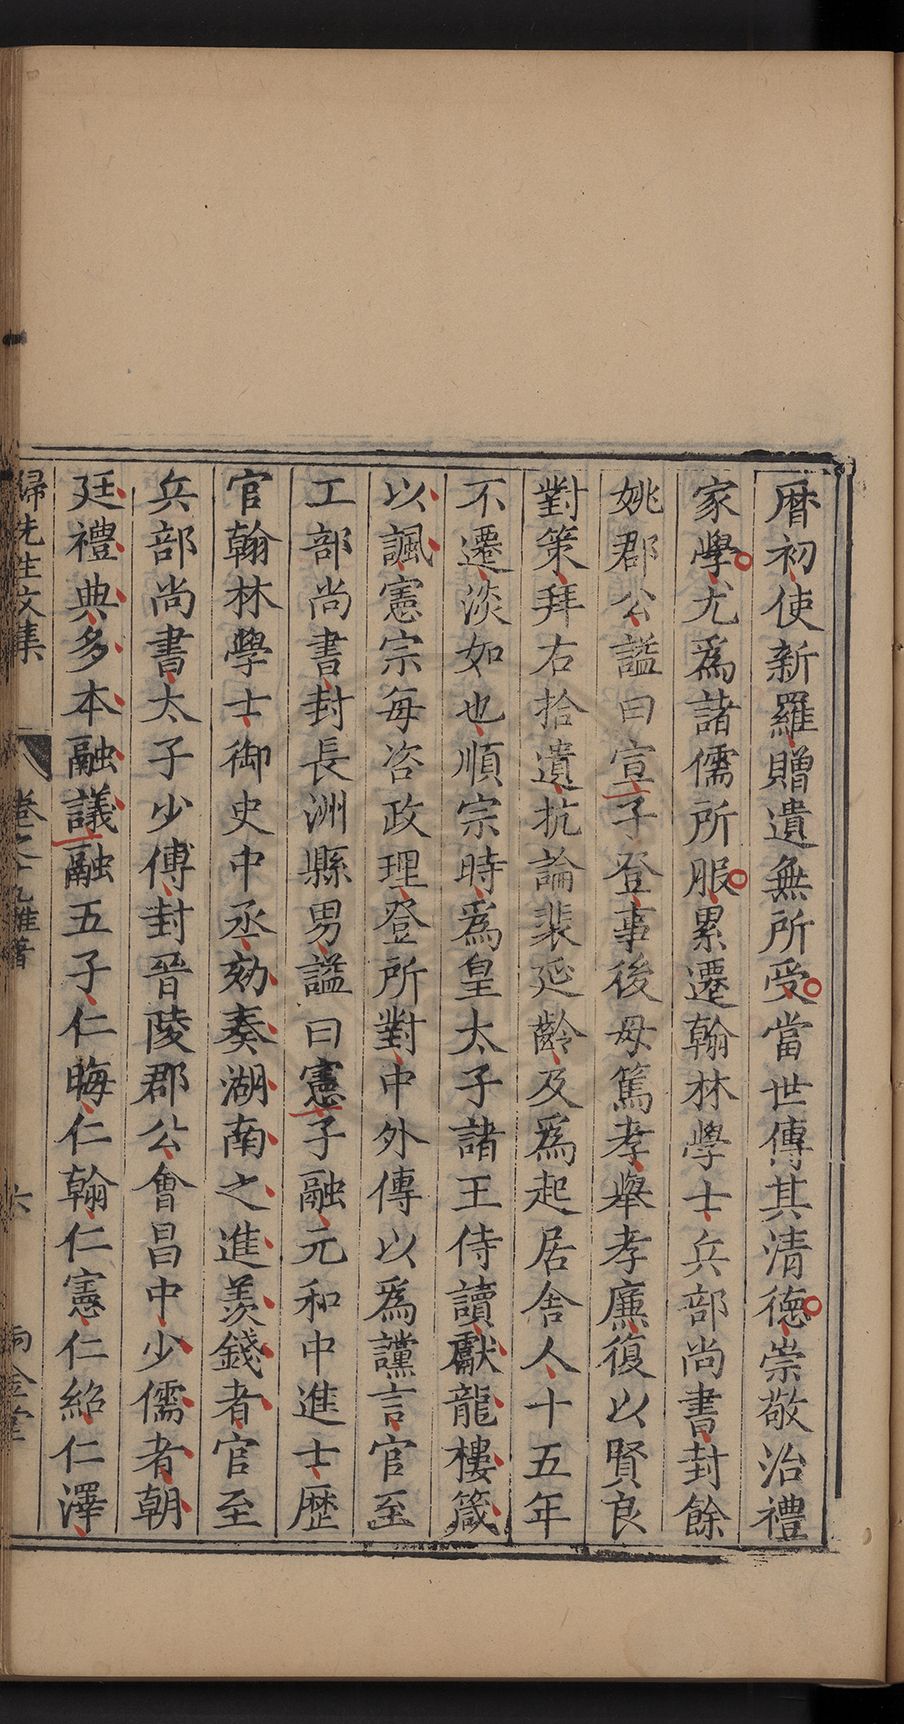 曆初使新羅贈遺無所受當世傳其清德崇敬治禮
家學尤爲諸儒所服累遷翰林學士兵部尚書封餘
姚郡公謚曰宣子登事後母篤孝舉孝廉復以賢良
對策拜右拾遺抗論裴延齡及爲起居舍人十五年
不遷淡如也順宗時爲皇太子諸王侍讀獻龍樓箴
以諷憲宗每咨政理登所對中外傳以爲讜言官至
工部尚書封長洲縣男謚曰憲子融元和中進士歷
官翰林學士御史中丞劾奏湖南之進羨錢者官至
兵部尚書太子少傅封晉陵郡公會昌中少儒者朝
廷禮典多本融議融五子仁晦仁翰仁憲仁紹仁澤
歸先生文集 卷之十九雜著 六